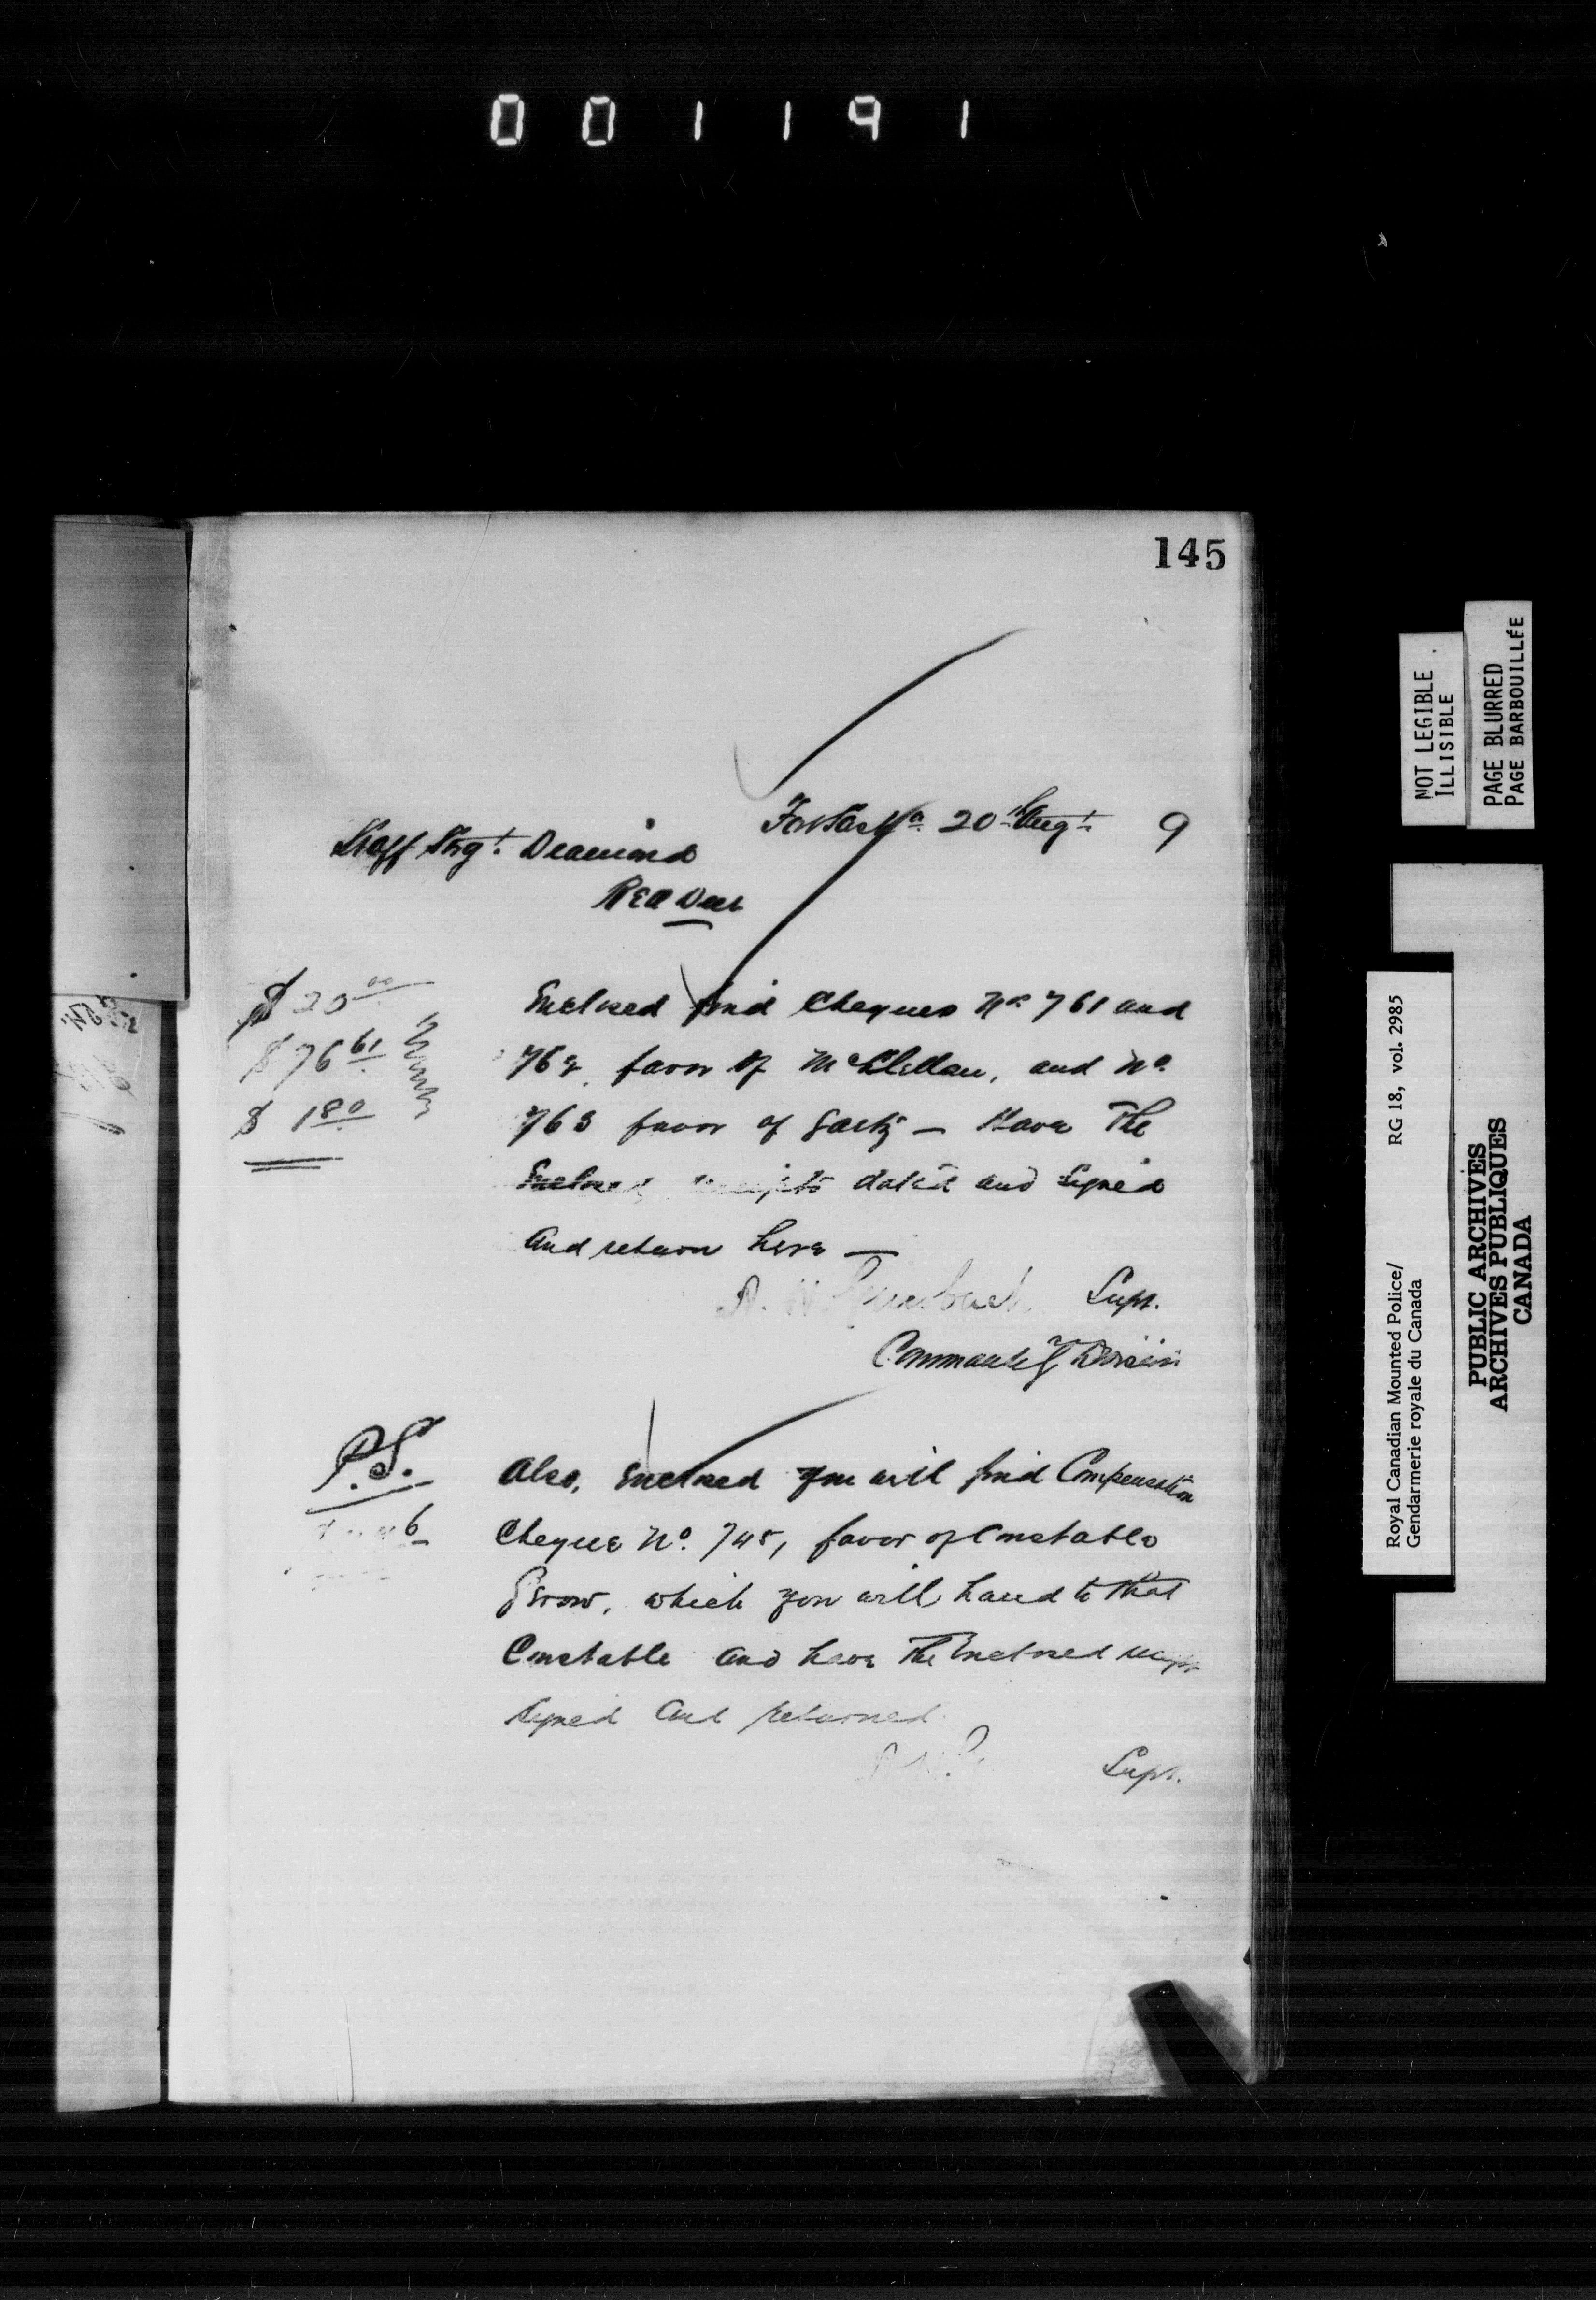 001191
145
Fort Sask<sup>n</sup> 20<sup>th</sup> Aug<sup>t</sup> 9
Staff Srg<sup>t</sup>. Diamond
Red Deer
$ 20 00
$ 76 61
$ 1 80
Enclosed find Cheques No 761 and
762, favor of McClellan, and No
763 favor of — Have The
Enclosed receipts dated and signed
and return here —
A. H. Griesbach Supt.
Command<sup>g</sup> Division
P.S.
Also, Enclosed you will find Compensation
Cheque No. 745, favor of Constable
which you will hand to that
Constable and have The Enclosed receipt
signed and returned
A. H. G. Supt.
NOT LEGIBLE
ILLISIBLE
PAGE BLURRED
PAGE BARBOUILLÉE
Royal Canadian Mounted Police/ RG 18, vol. 2985
Gendarmerie royale du Canada
PUBLIC ARCHIVES
ARCHIVES PUBLIQUES
CANADA